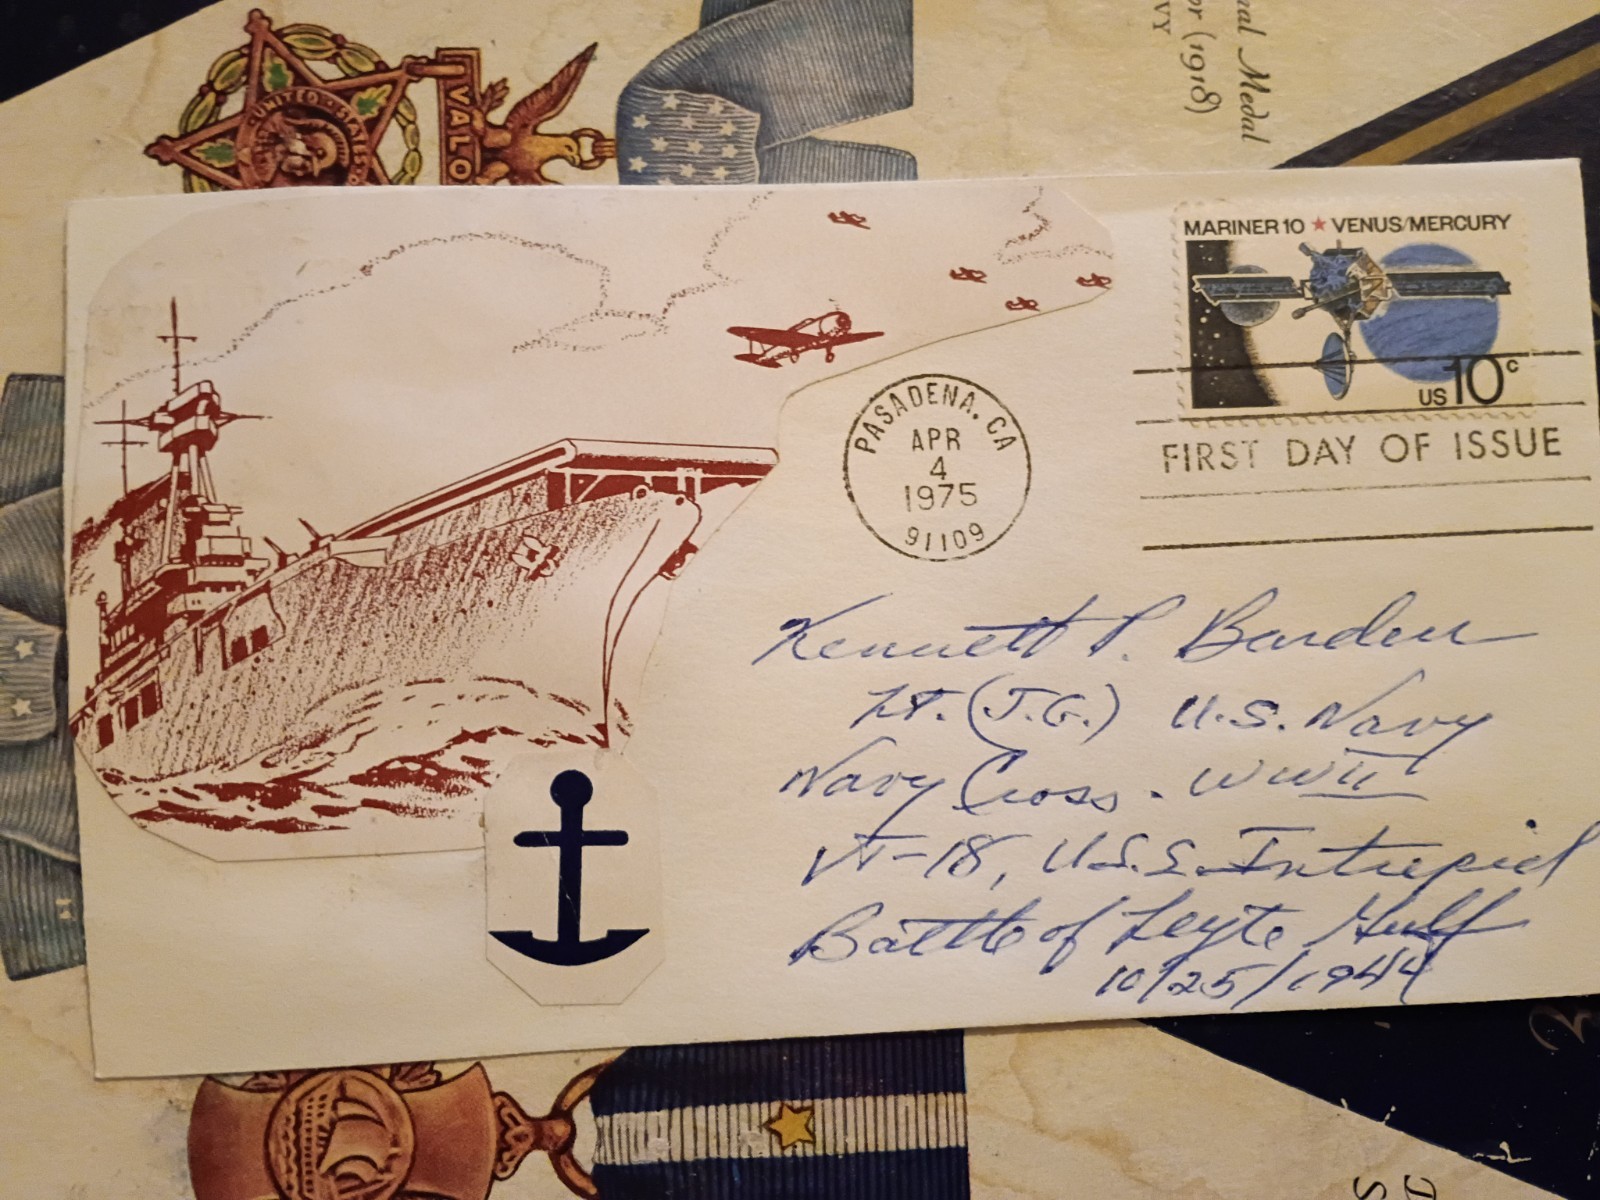 UNITED STATES O
VALO
nal Medal
or (1918)
VY
MARINER 10 ★ VENUS/MERCURY
US 10c
PASADENA, CA
APR
4
1975
91109
FIRST DAY OF ISSUE
Kenneth P. Barden
Lt. (J.G.) U.S. Navy
Navy Cross - WWII
VT-18, U.S.S. Intrepid
Battle of Leyte Gulf
10/25/1944